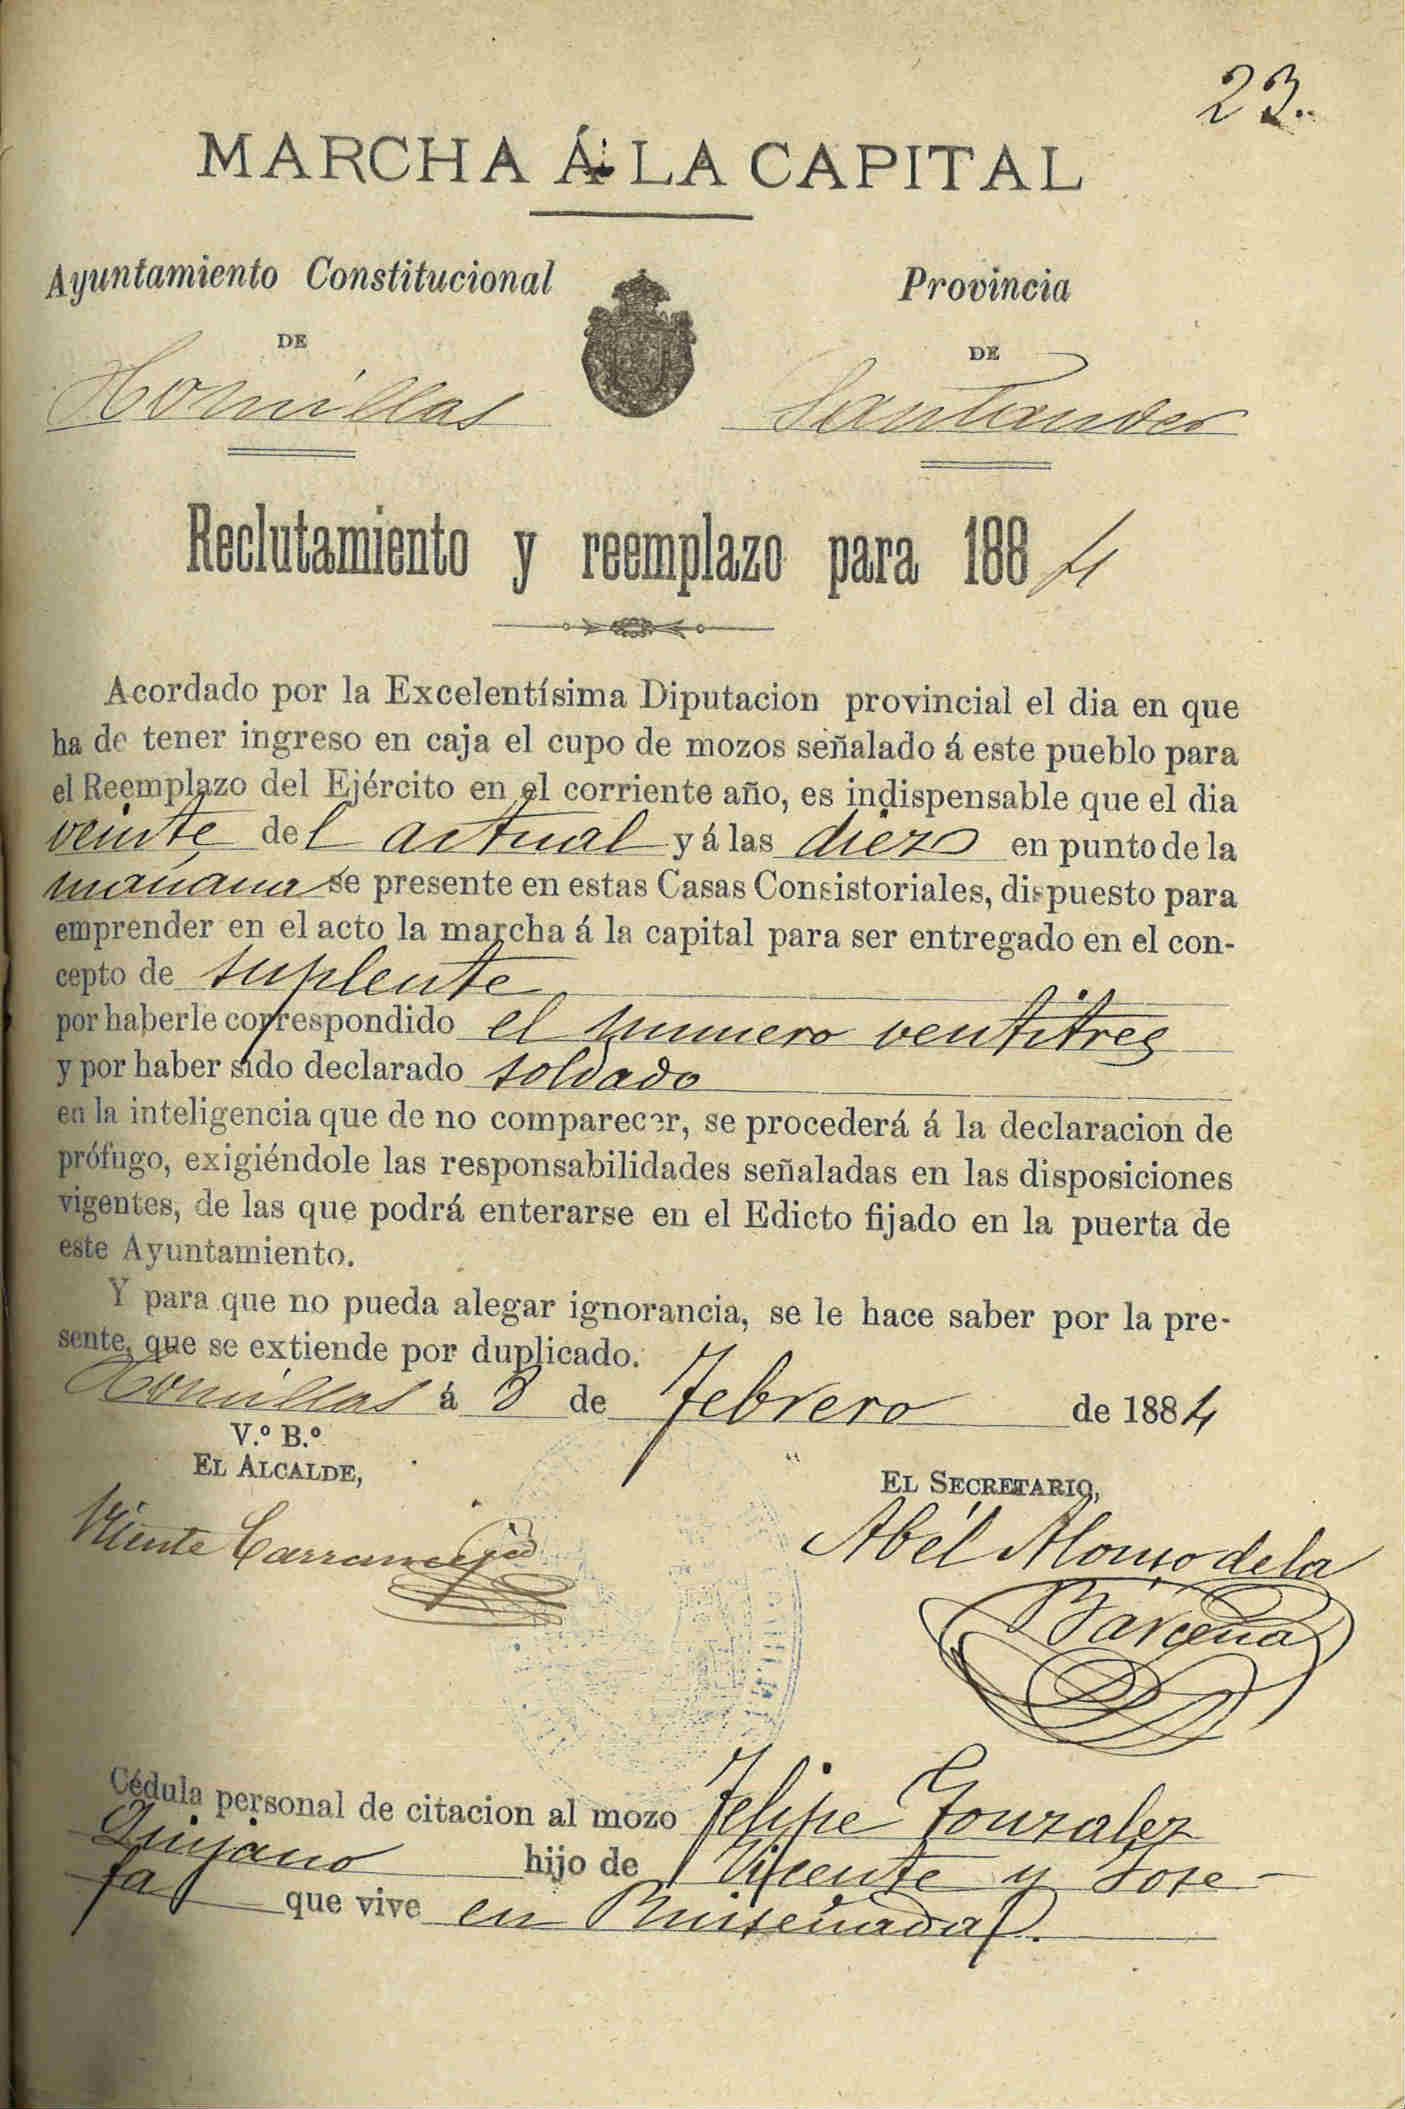 23.
MARCHA Á LA CAPITAL
Ayuntamiento Constitucional
DE
Comillas
Provincia
DE
Santander
Reclutamiento y reemplazo para 1884
Acordado por la Excelentísima Diputacion provincial el dia en que
ha de tener ingreso en caja el cupo de mozos señalado á este pueblo para
el Reemplazo del Ejército en el corriente año, es indispensable que el dia
veinte del actual y á las diez en punto de la
mañana se presente en estas Casas Consistoriales, dispuesto para
emprender en el acto la marcha á la capital para ser entregado en el con-
cepto de suplente
por haberle correspondido el numero ventitres
y por haber sido declarado soldado
en la inteligencia que de no comparecer, se procederá á la declaracion de
prófugo, exigiéndole las responsabilidades señaladas en las disposiciones
vigentes, de las que podrá enterarse en el Edicto fijado en la puerta de
este Ayuntamiento.
Y para que no pueda alegar ignorancia, se le hace saber por la pre-
sente, que se extiende por duplicado.
Comillas á 8 de Febrero de 1884
V.º B.º
EL ALCALDE,
EL SECRETARIO,
Vicente
Abél Alonso de la
Bárcena
Cédula personal de citacion al mozo Felipe Gonzalez
Quijano hijo de Vicente y Jose-
fa que vive en Ruiseñada.